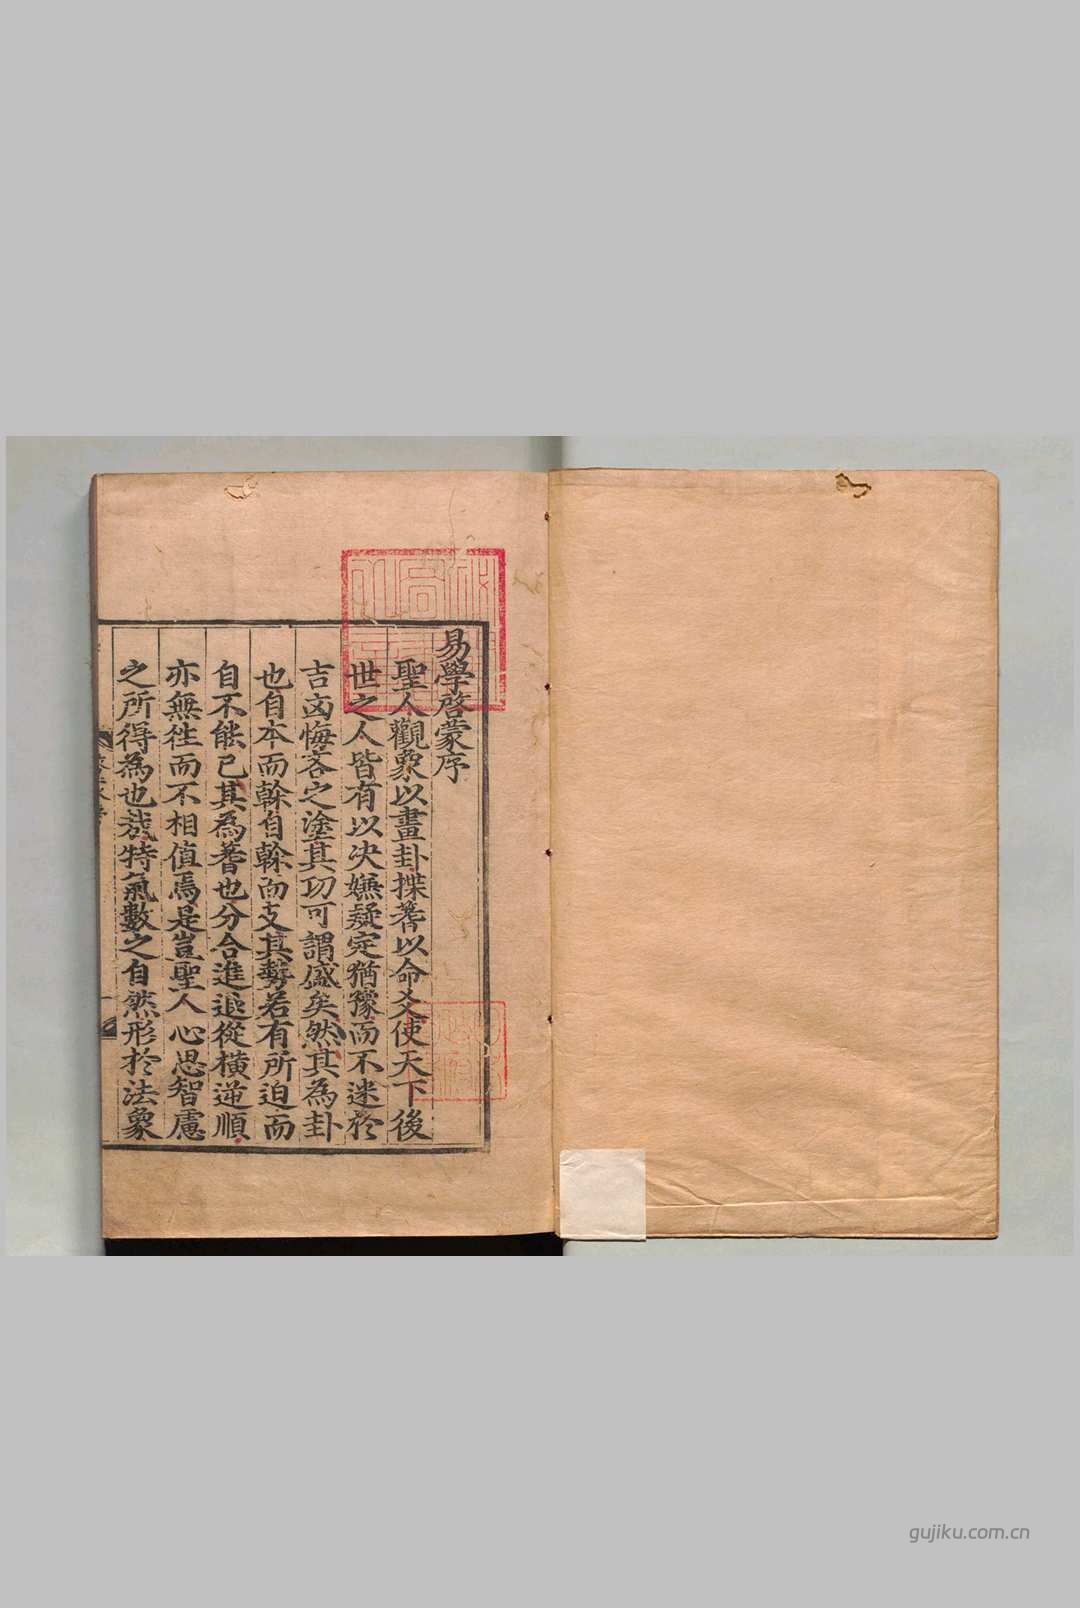 易學啓蒙序
聖人觀象以畫卦揲蓍以命爻使天下後
世之人皆有以决嫌疑定猶豫而不迷於
吉凶悔吝之塗其功可謂盛矣然其為卦
也自本而榦自榦而支其勢若有所迫而
自不能已其為蓍也分合進退從橫逆順
亦無往而不相值焉是豈聖人心思智慮
之所得為也㢤特氣數之自然形於法象
gujiku.com.cn